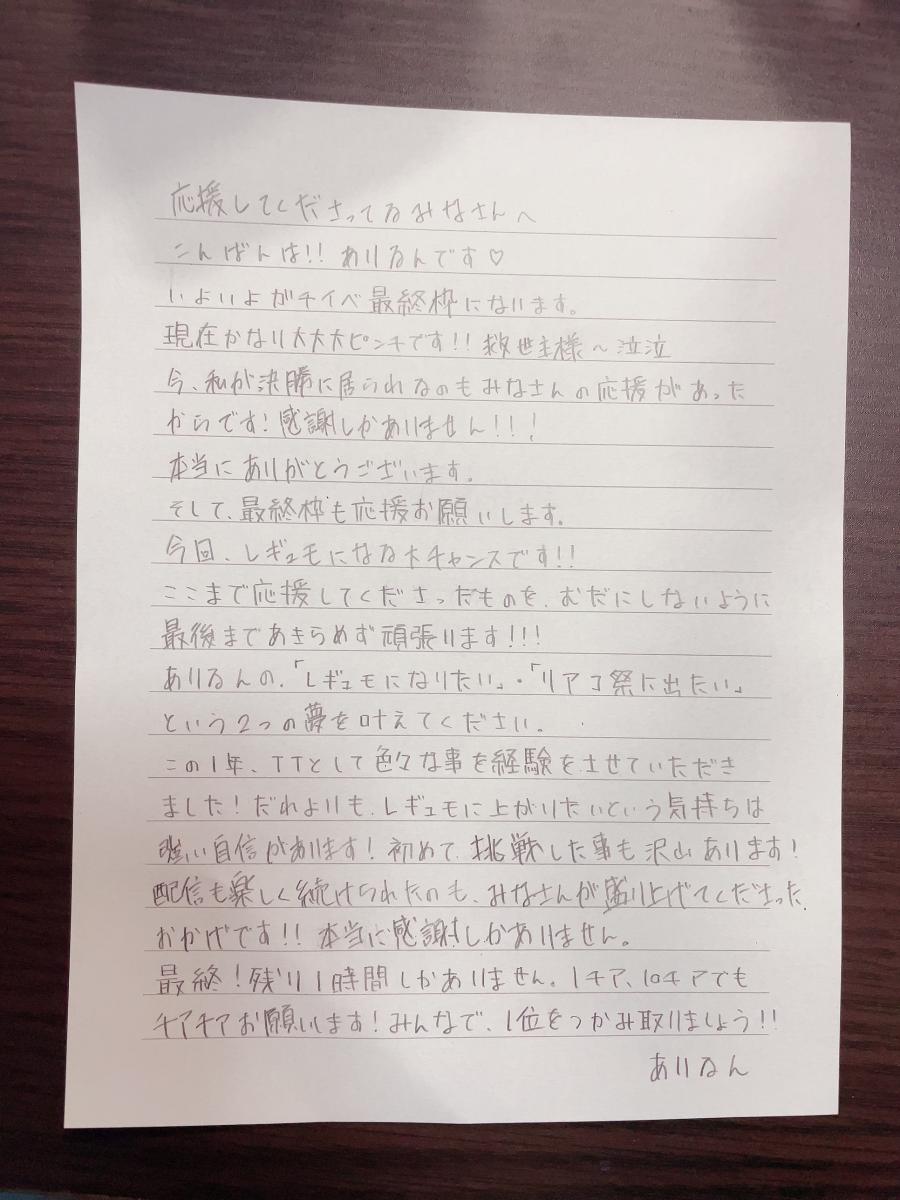 応援してくださってるみなさんへ
こんばんは!! ありるんです♡
いよいよガチイベ最終枠になります。
現在かなり大大大ピンチです!! 救世主様〜泣泣
今、私が決勝に居られるのもみなさんの応援があった
からです!感謝しかありません!!!
本当にありがとうございます。
そして、最終枠も応援お願いします。
今回、レギュモになる大チャンスです!!
ここまで応援してくださったものを、むだにしないように
最後まであきらめず頑張ります!!!
ありるんの、「レギュモになりたい」・「リアコ祭に出たい」
という2つの夢を叶えてください。
この1年、TTとして色々な事を経験をさせていただき
ました!だれよりも、レギュモに上がりたいという気持ちは
強い自信があります!初めて、挑戦した事も沢山あります!
配信も楽しく続けられたのも、みなさんが盛り上げてくださった
おかげです!! 本当に感謝しかありません。
最終!残り1時間しかありません。1チア、10チアでも
チアチアお願いします!みんなで、1位をつかみ取りましょう!!
ありるん